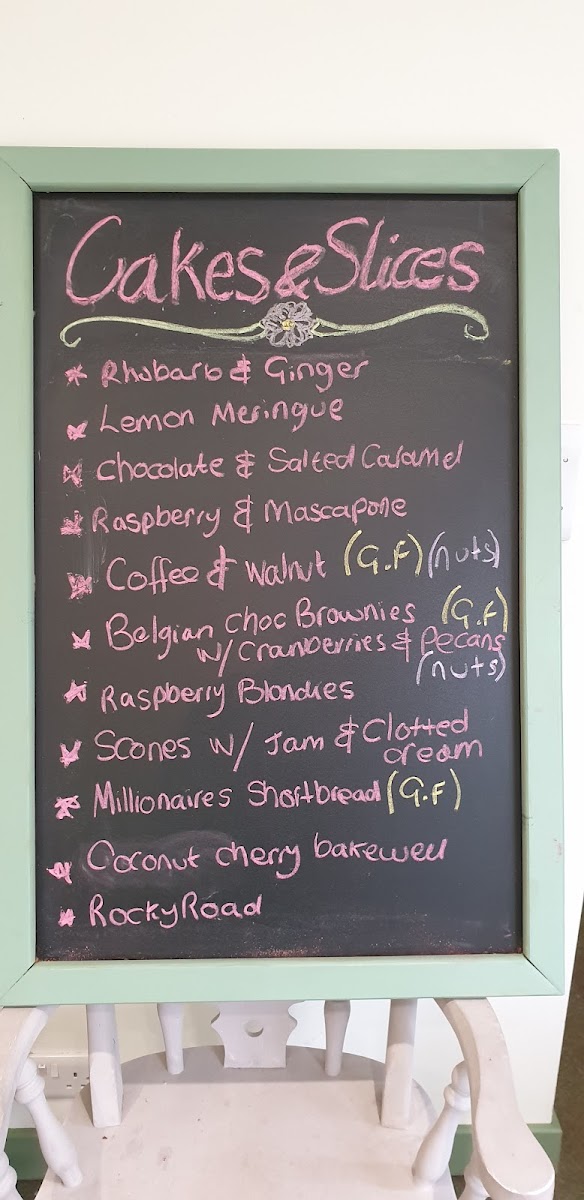 Cakes & Slices
* Rhubarb & Ginger
* Lemon Meringue
* Chocolate & Salted Caramel
* Raspberry & Mascapone
* Coffee & Walnut (G.F) (nuts)
* Belgian Choc Brownies (G.F)
w/ Cranberries & Pecans
(nuts)
* Raspberry Blondies
* Scones w/ Jam & Clotted
cream
* Millionaires Shortbread (G.F)
* Coconut cherry bakewell
* Rocky Road